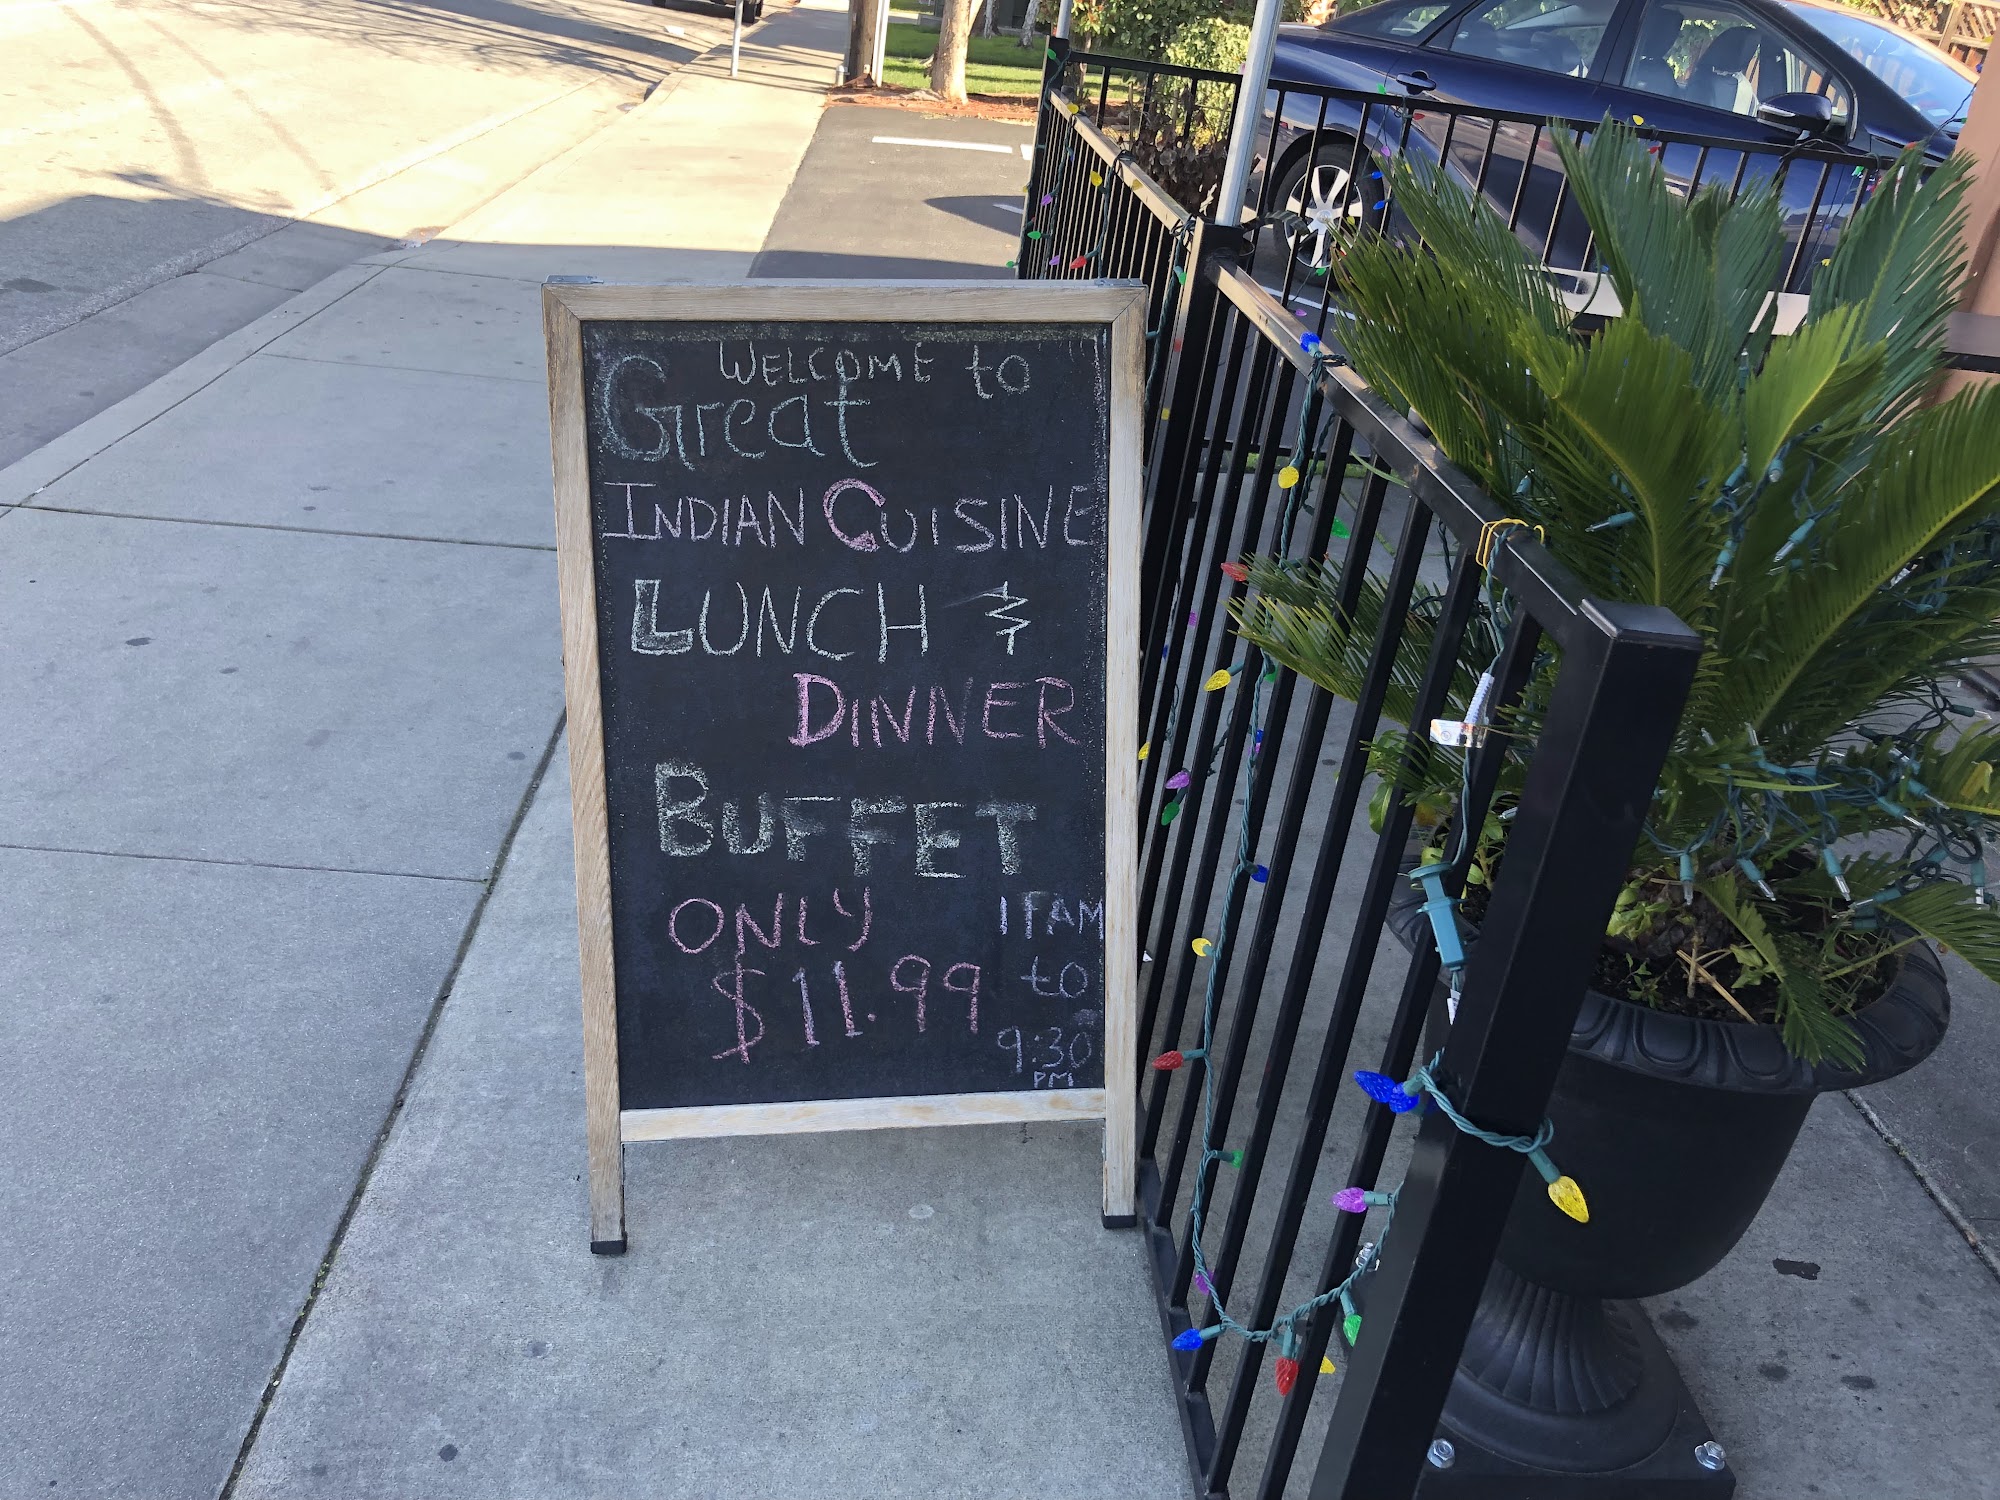 WELCOME to
Great
INDIAN CUISINE
LUNCH &
DINNER
BUFFET
ONLY
$11.99
AM
to
9:30
PM